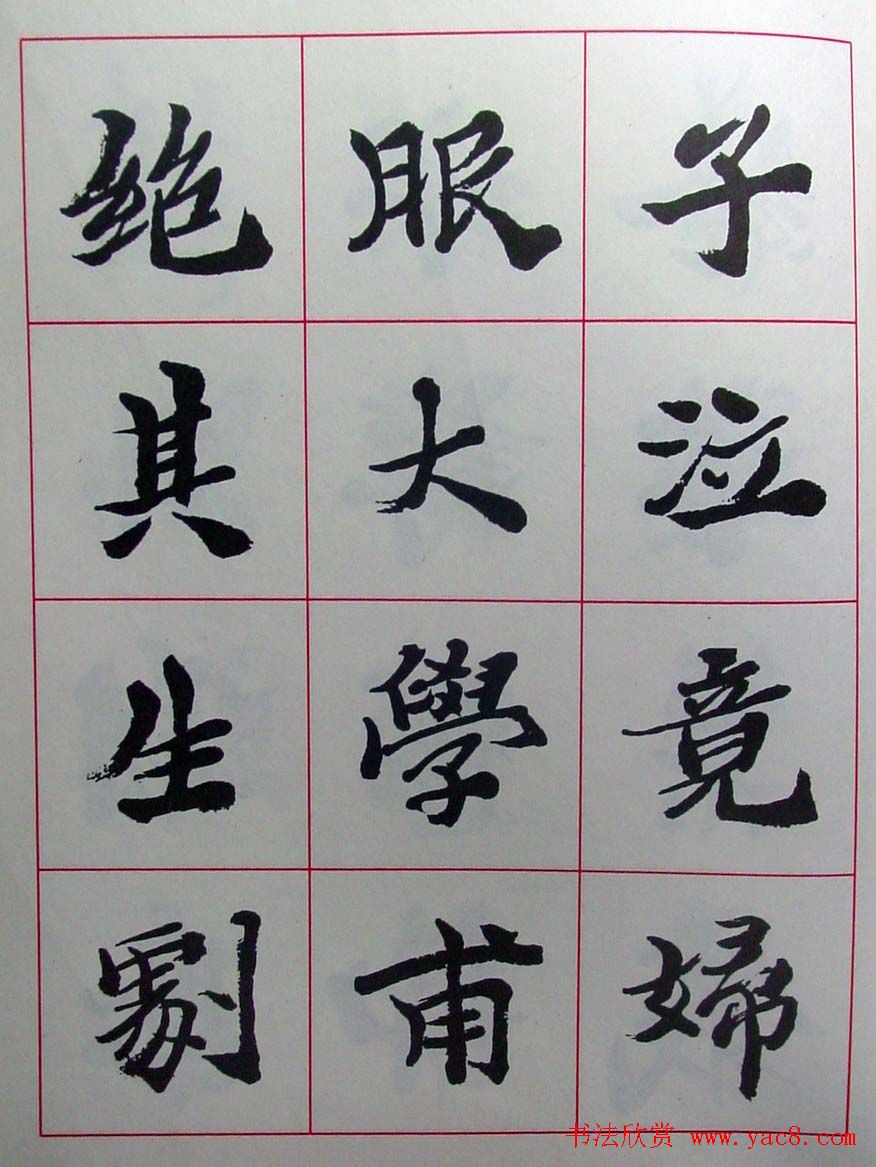 子泣竟婦
服大學甫
絶其生劇
书法欣赏 www.yac8.com